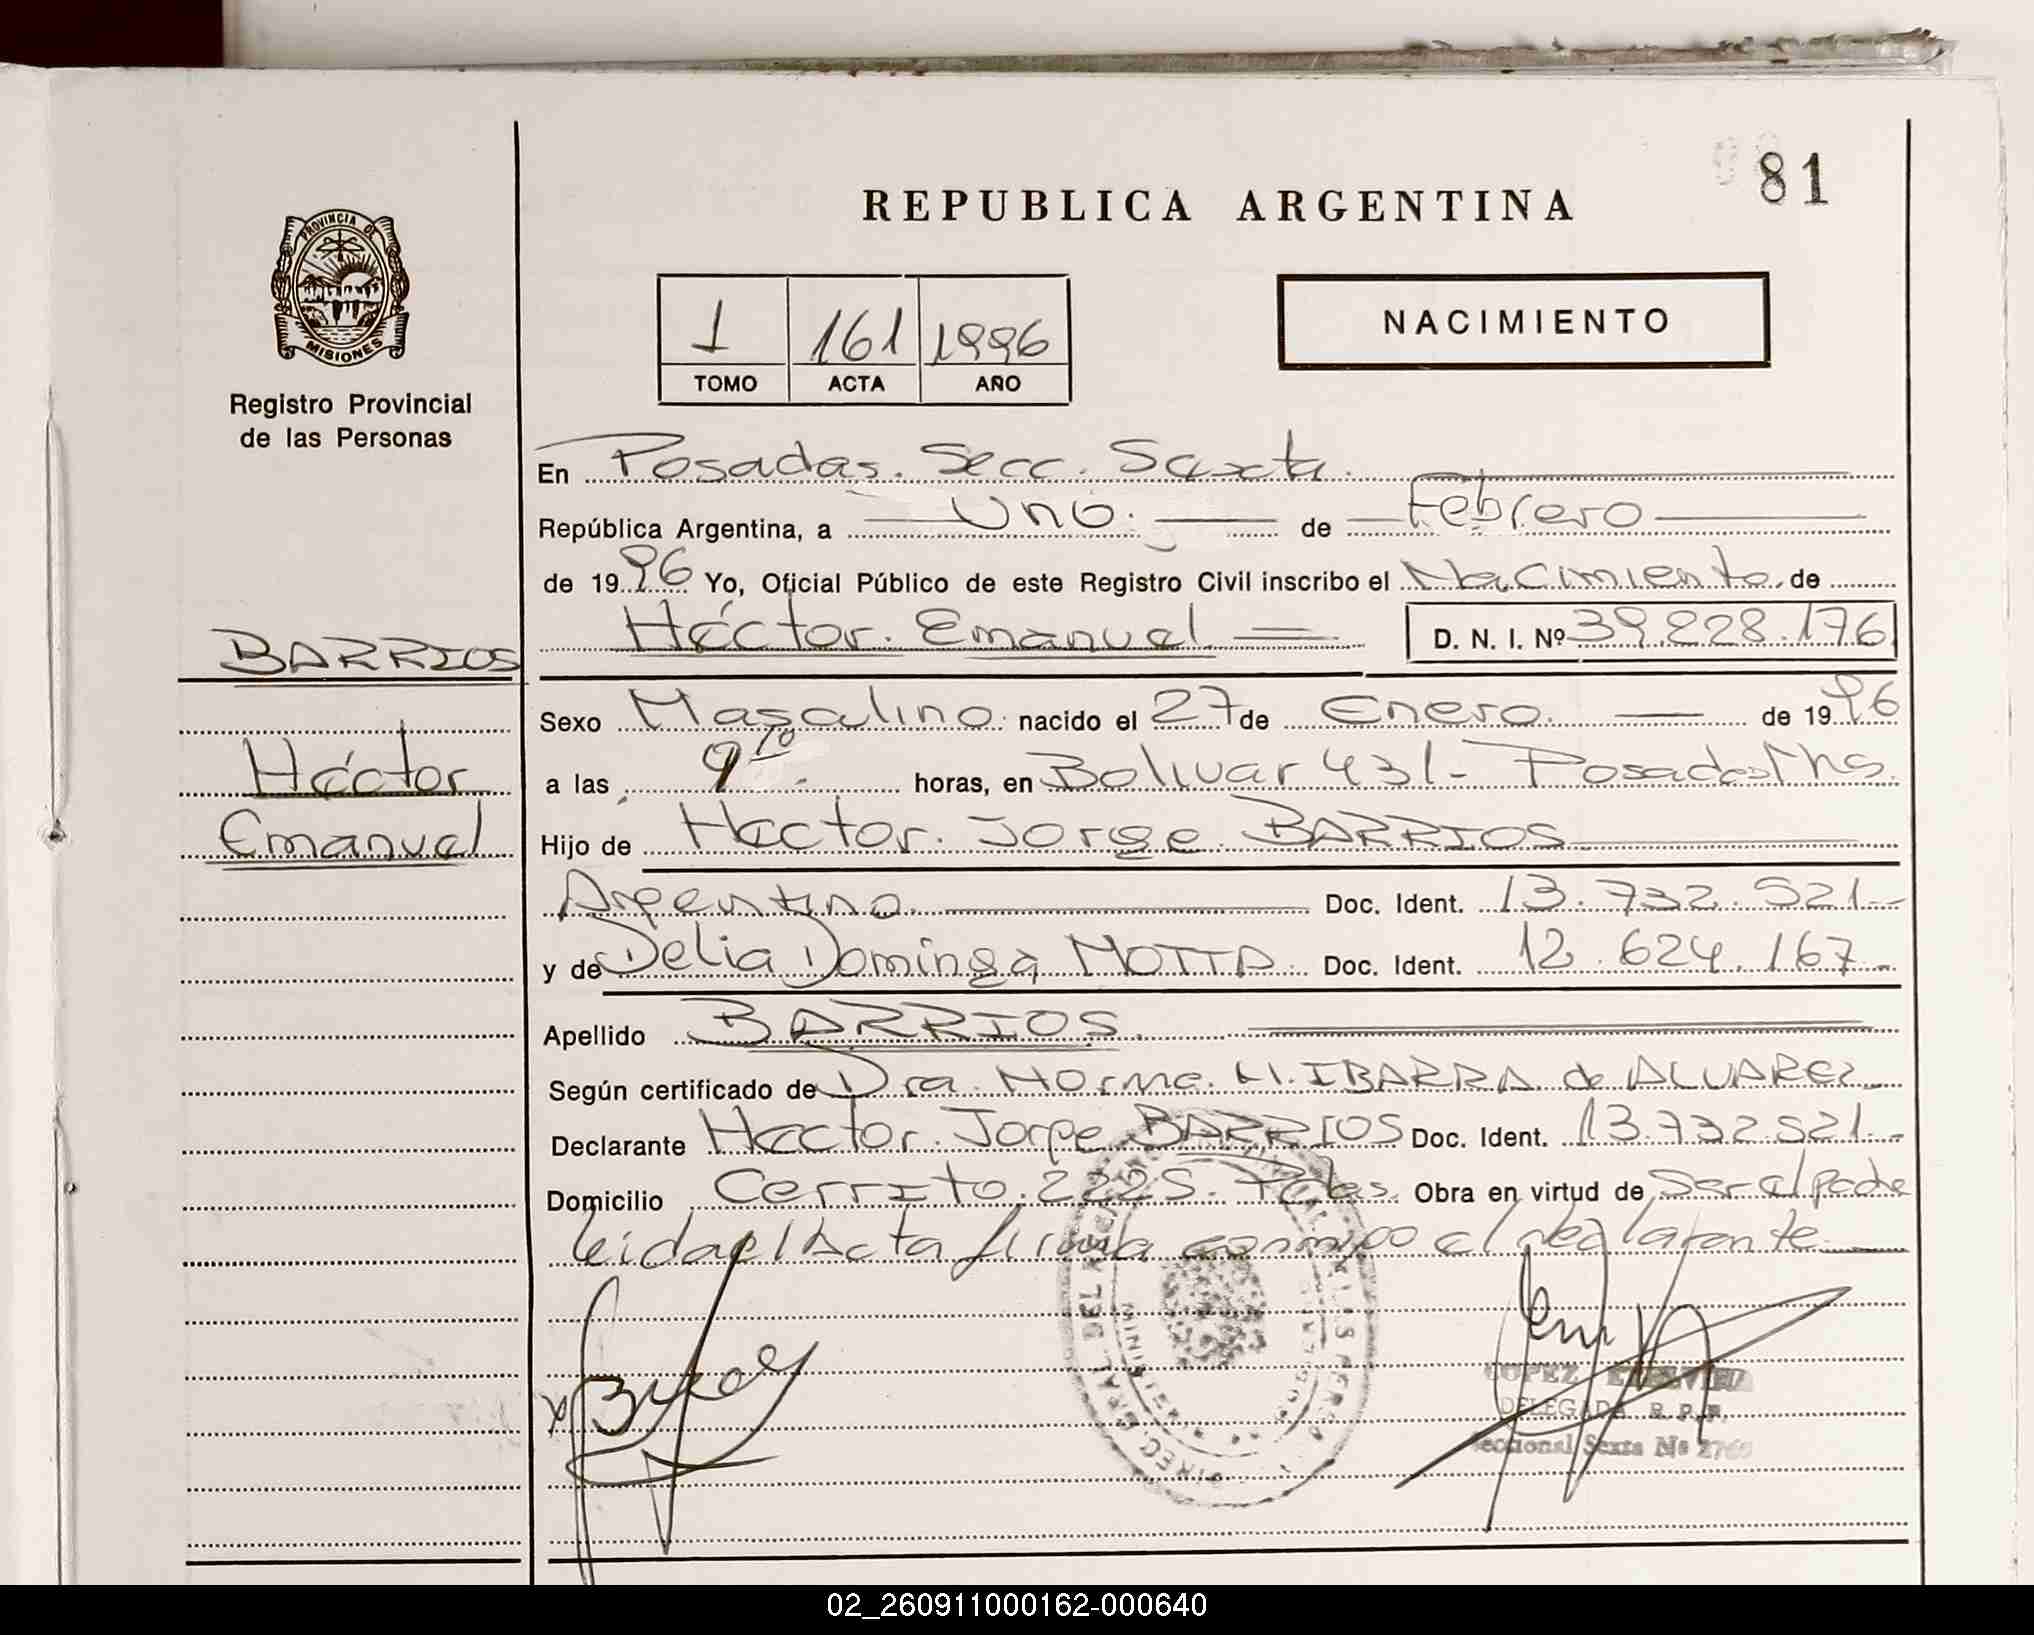 81
REPUBLICA ARGENTINA
PROVINCIA DE
MISIONES
Registro Provincial
de las Personas
1 161 1996
TOMO ACTA AÑO
NACIMIENTO
En Posadas. Secc. Sexta.
República Argentina, a Uno. de Febrero
de 1996 Yo, Oficial Público de este Registro Civil inscribo el Nacimiento de
Héctor. Emanuel D. N. I. Nº 39.228.176
BARRIOS
Héctor
Emanuel
Sexo Masculino nacido el 27 de Enero de 1996
a las 9 10 horas, en Bolivar 431 - Posadas Mns.
Hijo de Hector. Jorge BARRIOS
Argentino Doc. Ident. 13.732.521-
y de Delia Dominga MOTTA Doc. Ident. 12.624.167-
Apellido BARRIOS.
Según certificado de Dra. Norma. H. IBARRA de ALVAREZ
Declarante Hector. Jorge BARRIOS Doc. Ident. 13.732.521-
Domicilio Cerrito. 2225. Pdas. Obra en virtud de Ser el padre
leida el Acta firma conmigo el declarante
LOPEZ
DELEGADA R. P. P.
Seccional Sexta Nº
02_260911000162-000640